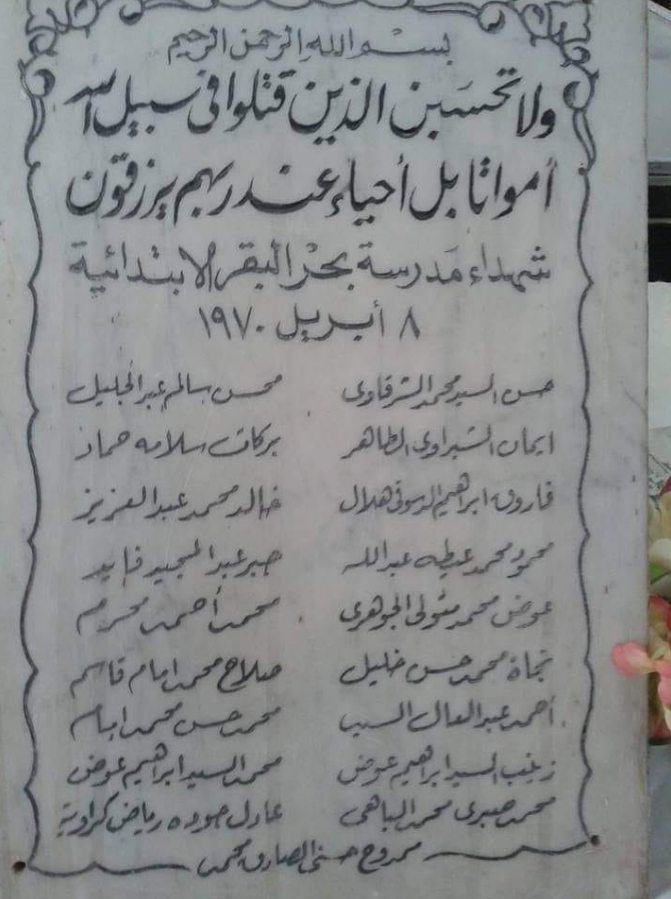 بسم الله الرحمن الرحيم
ولا تحسبن الذين قتلوا في سبيل الله
أمواتا بل أحياء عند ربهم يرزقون
شهداء مدرسة بحر البقر الابتدائية
٨ أبريل ١٩٧٠
حسن السيد محمد الشرقاوى محسن سالم عبد الجليل
ايمان الشبراوى الطاهر بركات سلامه حماد
فاروق ابراهيم الدسوقى هلال خالد محمد عبد العزيز
محمود محمد عطيه عبد الله جبر عبد المجيد فايد
عوض محمد متولى الجوهرى محمد أحمد محرم
نجاة محمد حسن خليل صلاح محمد امام قاسم
أحمد عبد العال السيد محمد حسن محمد امام
زينب السيد ابراهيم عوض محمد السيد ابراهيم عوض
محمد صبرى محمد الباهى عادل جوده رياض كراوية
ممدوح حسنى الصادق محمد